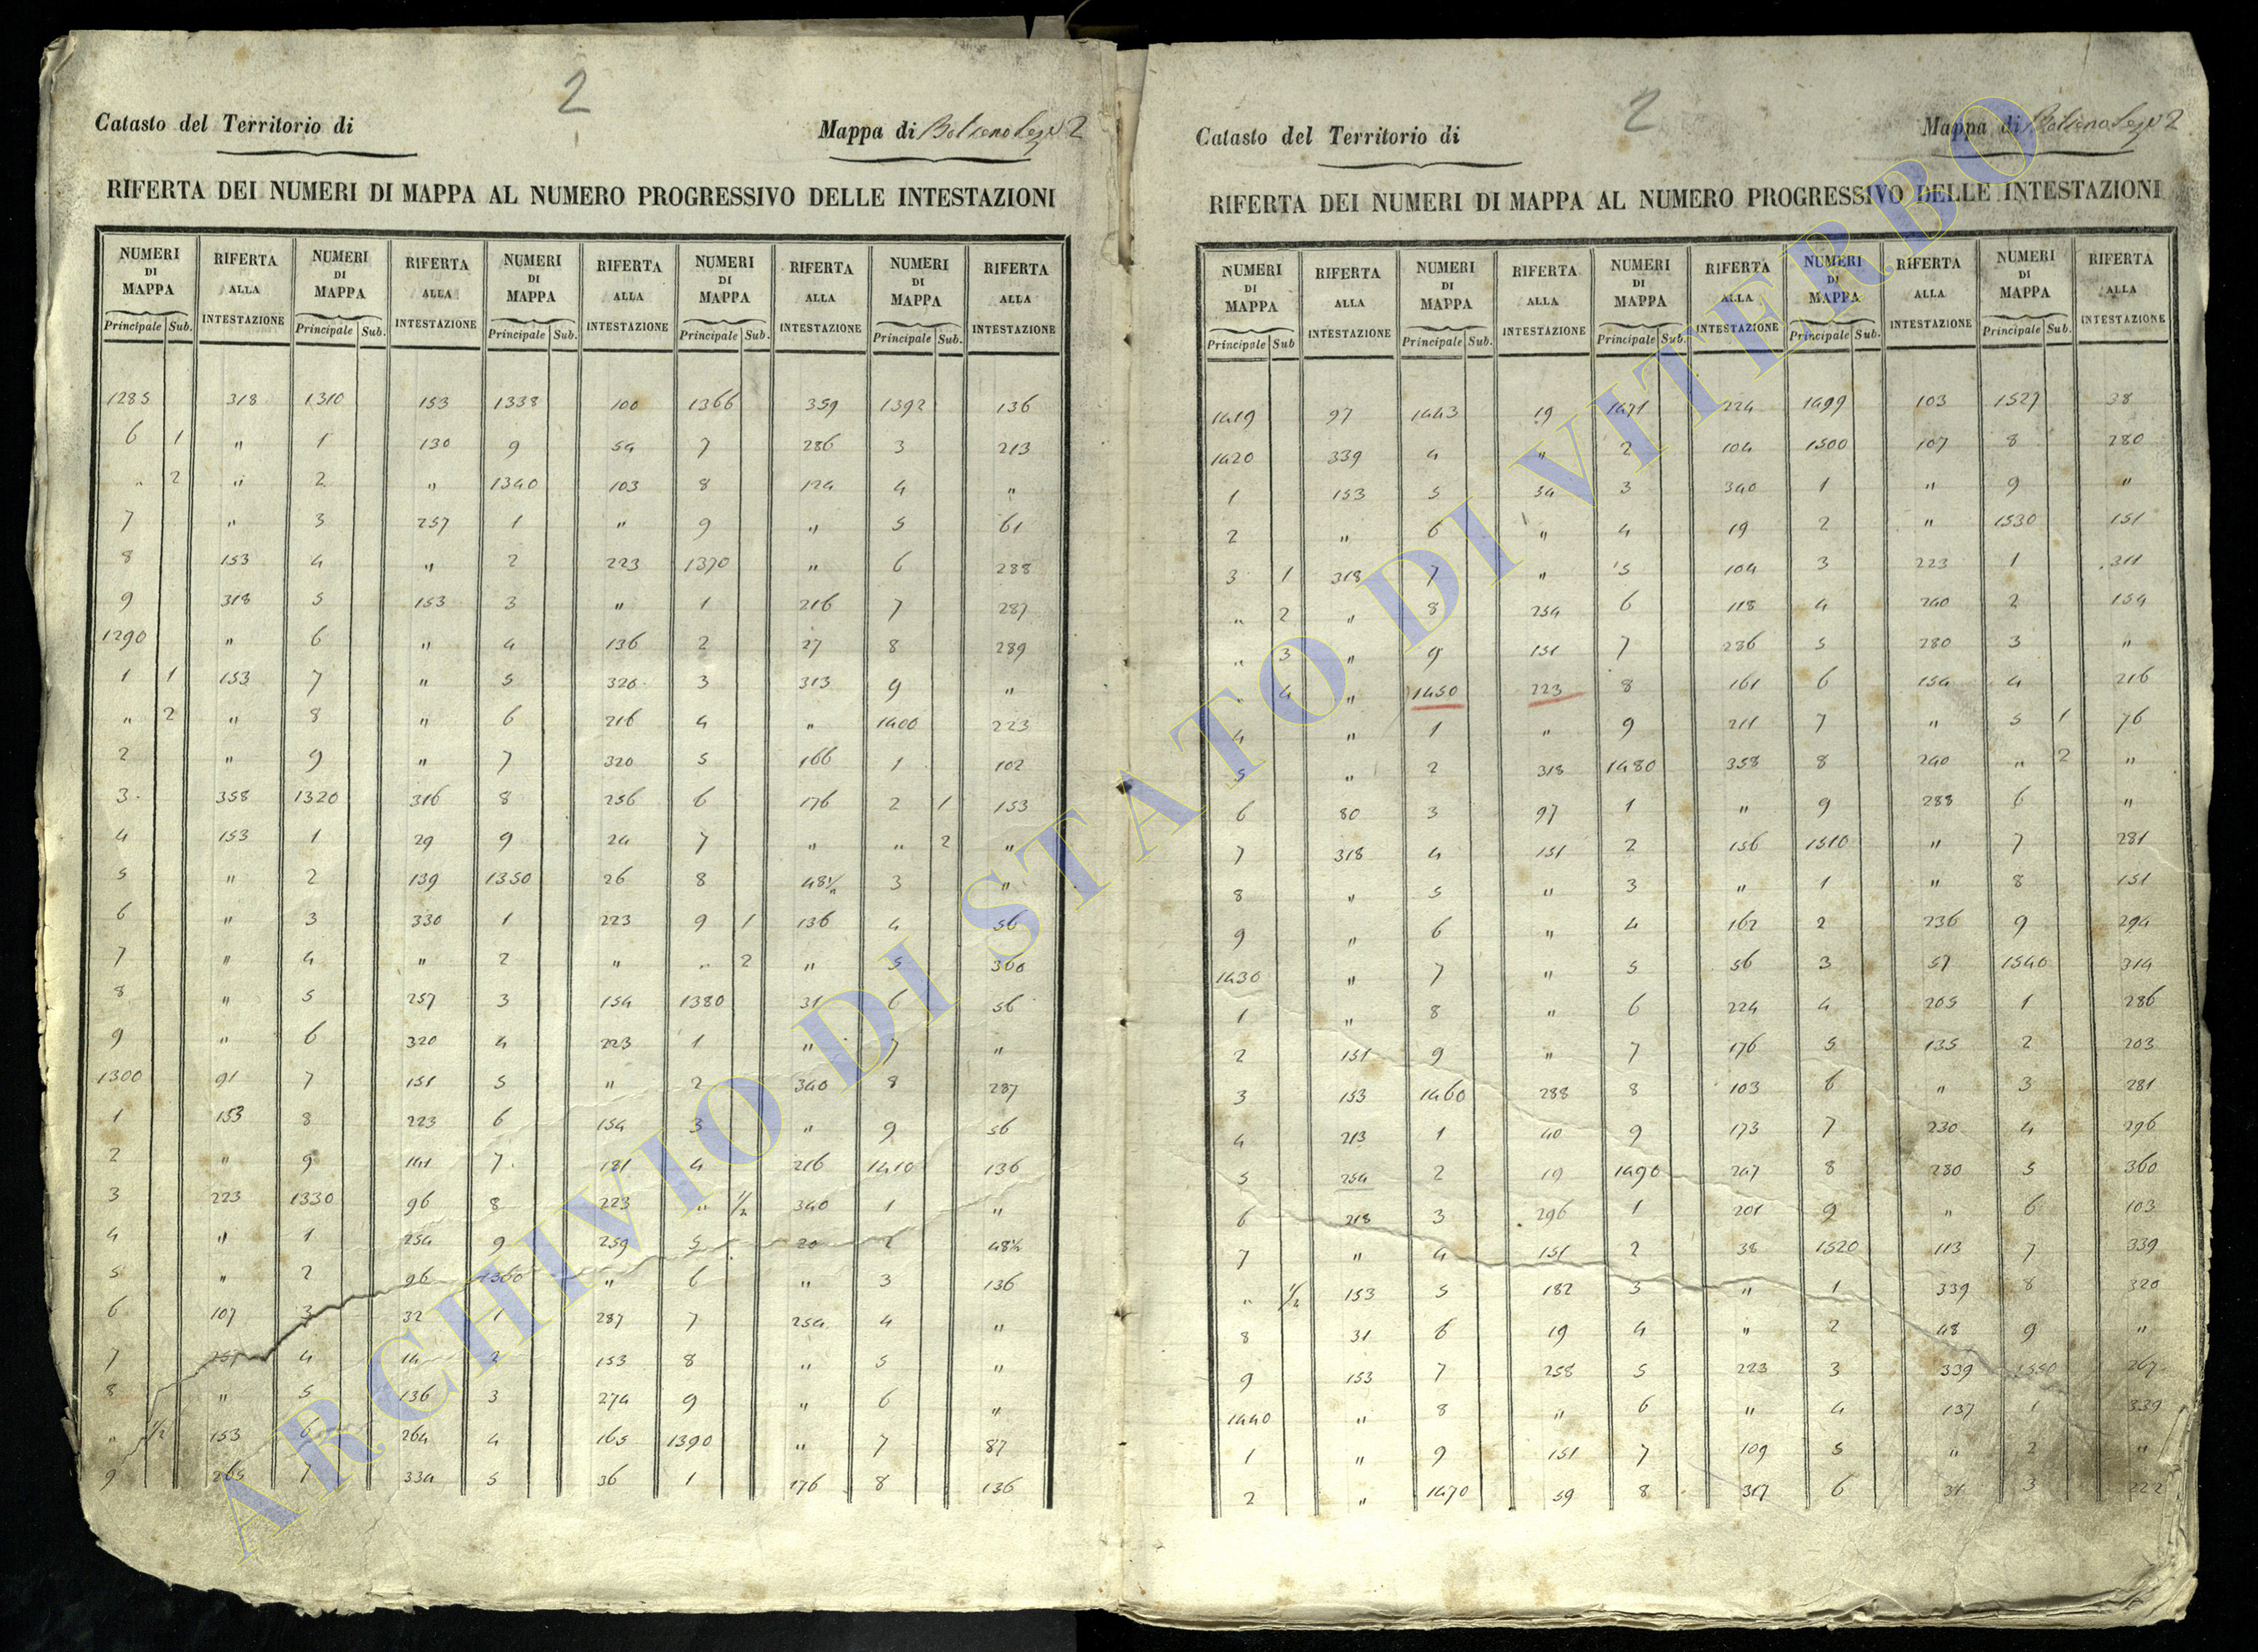 2
Catasto del Territorio di
Mappa di Bolseno Sez. 2
RIFERTA DEI NUMERI DI MAPPA AL NUMERO PROGRESSIVO DELLE INTESTAZIONI
NUMERI DI MAPPA RIFERTA ALLA INTESTAZIONE NUMERI DI MAPPA RIFERTA ALLA INTESTAZIONE NUMERI DI MAPPA RIFERTA ALLA INTESTAZIONE NUMERI DI MAPPA RIFERTA ALLA INTESTAZIONE NUMERI DI MAPPA RIFERTA ALLA INTESTAZIONE
Principale Sub. Principale Sub. Principale Sub. Principale Sub. Principale Sub.
1285 318 1310 153 1338 100 1366 359 1392 136
6 1 " 1 130 9 54 7 286 3 213
" 2 " 2 " 1340 103 8 124 4 "
7 " 3 257 1 " 9 " 5 61
8 153 4 " 2 223 1370 " 6 288
9 318 5 153 3 " 1 216 7 287
1290 " 6 " 4 136 2 27 8 289
1 1 153 7 " 5 320 3 313 9 "
" 2 " 8 " 6 216 4 " 1400 223
2 " 9 " 7 320 5 166 1 102
3 358 1320 316 8 256 6 176 2 1 153
4 153 1 29 9 24 7 " " 2 "
5 " 2 139 1350 26 8 48½ 3 "
6 " 3 330 1 223 9 1 136 4 56
7 " 4 " 2 " " 2 " 5 360
8 " 5 257 3 154 1380 31 6 56
9 " 6 320 4 223 1 " 7 "
1300 91 7 151 5 " 2 340 8 287
1 153 8 223 6 154 3 " 9 56
2 " 9 141 7 181 4 216 1410 136
3 223 1330 96 8 223 " ½ 340 1 "
4 " 1 254 9 259 5 20 2 48½
5 " 2 96 1360 " 6 " 3 136
6 107 3 32 1 287 7 254 4 "
7 257 4 14 2 153 8 " 5 "
8 " 5 136 3 274 9 " 6 "
" ½ 153 6 264 4 165 1390 " 7 87
9 265 7 334 5 36 1 176 8 136
2
Catasto del Territorio di
Mappa di Bolseno Sez. 2
RIFERTA DEI NUMERI DI MAPPA AL NUMERO PROGRESSIVO DELLE INTESTAZIONI
NUMERI DI MAPPA RIFERTA ALLA INTESTAZIONE NUMERI DI MAPPA RIFERTA ALLA INTESTAZIONE NUMERI DI MAPPA RIFERTA ALLA INTESTAZIONE NUMERI DI MAPPA RIFERTA ALLA INTESTAZIONE NUMERI DI MAPPA RIFERTA ALLA INTESTAZIONE
Principale Sub Principale Sub. Principale Sub. Principale Sub. Principale Sub.
1419 97 1443 19 1471 224 1499 103 1527 38
1420 339 4 " 2 104 1500 107 8 280
1 153 5 34 3 340 1 " 9 "
2 " 6 " 4 19 2 " 1530 151
3 1 318 7 " 5 104 3 223 1 311
" 2 " 8 254 6 118 4 240 2 154
" 3 " 9 151 7 286 5 280 3 "
" 4 " 1450 223 8 161 6 154 4 216
4 " 1 " 9 211 7 " 5 1 76
5 " 2 318 1480 358 8 240 " 2 "
6 80 3 97 1 " 9 288 6 "
7 318 4 151 2 156 1510 " 7 281
8 " 5 " 3 " 1 " 8 151
9 " 6 " 4 162 2 236 9 294
1430 " 7 " 5 56 3 57 1540 314
1 " 8 " 6 224 4 205 1 286
2 151 9 " 7 176 5 135 2 203
3 153 1460 288 8 103 6 " 3 281
4 213 1 40 9 173 7 230 4 296
5 254 2 19 1490 247 8 280 5 360
6 218 3 296 1 201 9 " 6 103
7 " 4 151 2 38 1520 113 7 339
" ½ 153 5 182 3 " 1 339 8 320
8 31 6 19 4 " 2 48 9 "
9 153 7 258 5 223 3 339 1550 267
1440 " 8 " 6 " 4 137 1 339
1 " 9 151 7 109 5 " 2 "
2 " 1470 59 8 317 6 31 3 222
ARCHIVIO DI STATO DI VITERBO